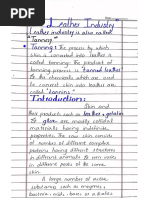 "Leather Industry"
Leather industry is also called
"Tanning"
Tanning: The process by which
skin is converted into leather is
called tanning. The product of
tanning process is "tanned leather"
The chemicals which are used
to convert skin into leather are
called "tannins."
Introduction:
Skin and
their products such as leather & gelatin
& glue are readily collidal
materials having indefinite
composition. The skin is made up
of number of different complex
proteins having different structures
in different animals as well as
in different parts of the same
skin.
A large number of active
substance such as enzymes,
bacteria, acids, bases or